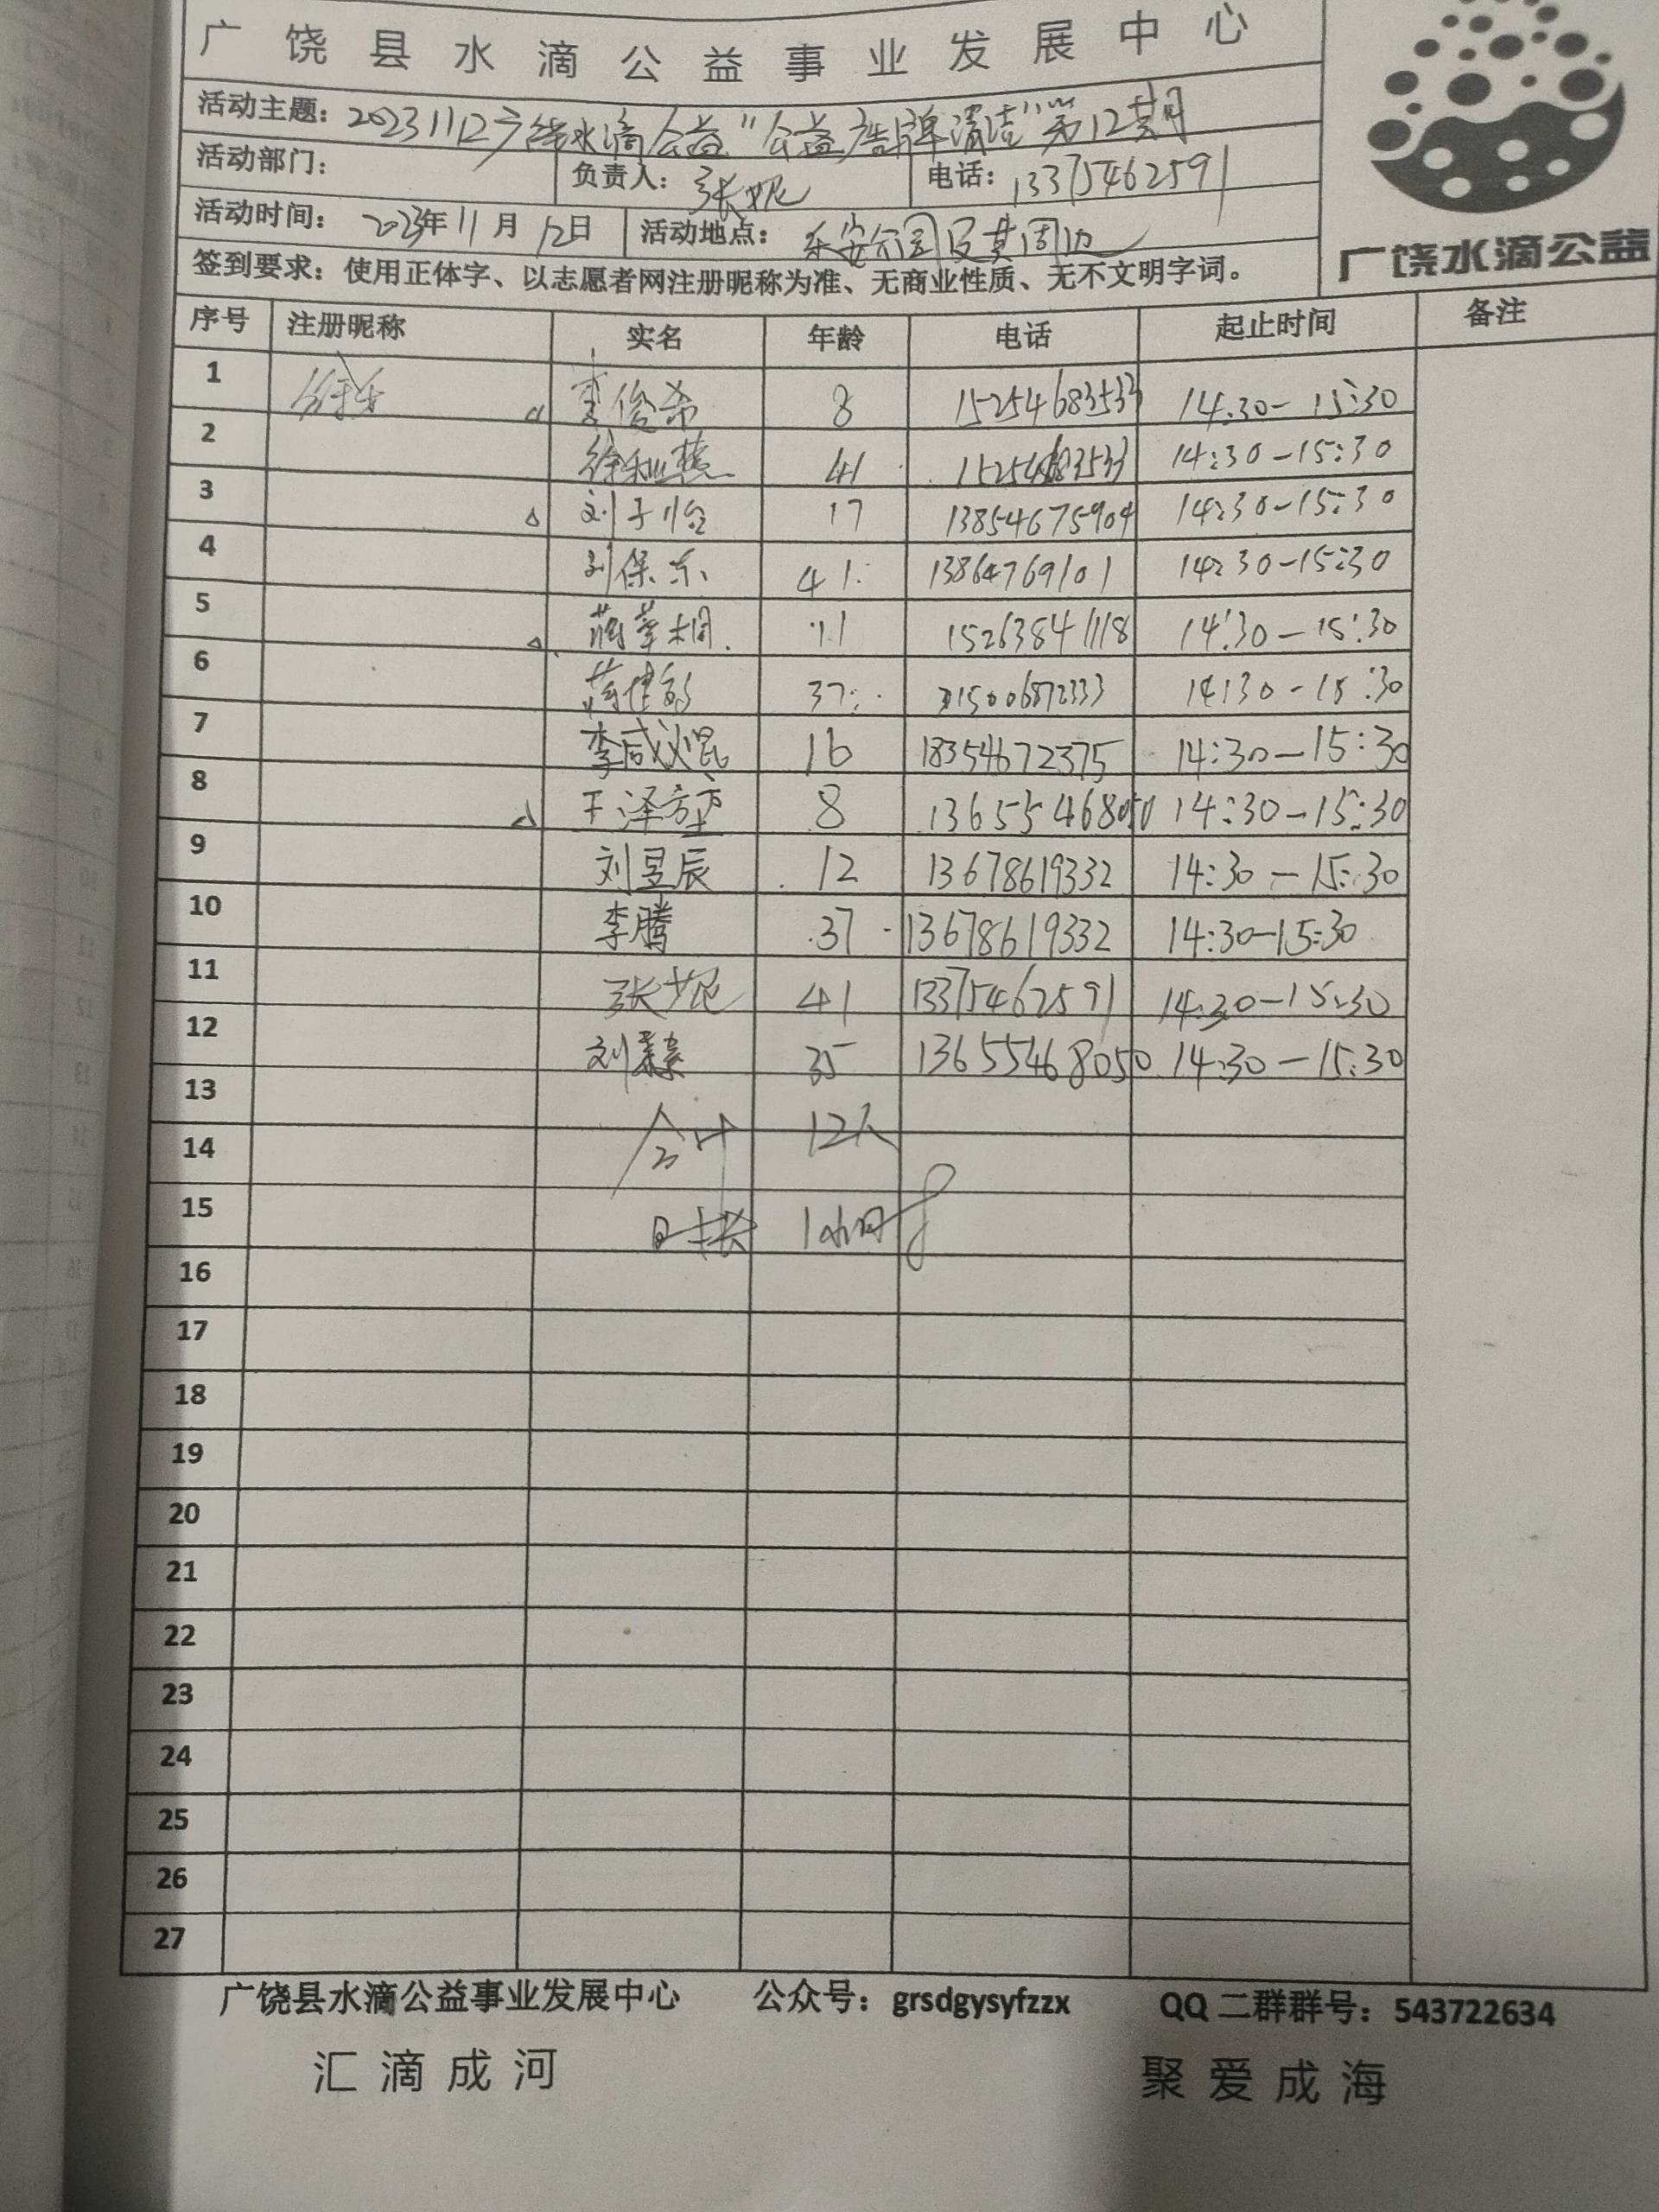 广饶县水滴公益事业发展中心
活动主题：20231112广饶水滴公益“公益广告牌清洁”第12期
活动部门： 负责人：张妮 电话：13375462591
活动时间：2023年11月12日 活动地点：乐安公园及其周边
签到要求：使用正体字、以志愿者网注册昵称为准、无商业性质、无不文明字词。
广饶水滴公益
序号 注册昵称 实名 年龄 电话 起止时间 备注
1 李俊希 8 15254683533 14:30-15:30
2 41 15254683533 14:30-15:30
3 刘子怡 17 13854675904 14:30-15:30
4 刘保东 41 13864769101 14:30-15:30
5 11 15263841118 14:30-15:30
6 37 15006872333 14:30-15:30
7 16 18354672375 14:30-15:30
8 王泽 8 13655468050 14:30-15:30
9 刘昱辰 12 13678619332 14:30-15:30
10 李腾 37 13678619332 14:30-15:30
11 张妮 41 13375462591 14:30-15:30
12 刘 35 13655468050 14:30-15:30
13
合计 12人
14
15 时长 1小时
16
17
18
19
20
21
22
23
24
25
26
27
广饶县水滴公益事业发展中心 公众号：grsdgysyfzzx QQ二群群号：543722634
汇滴成河 聚爱成海